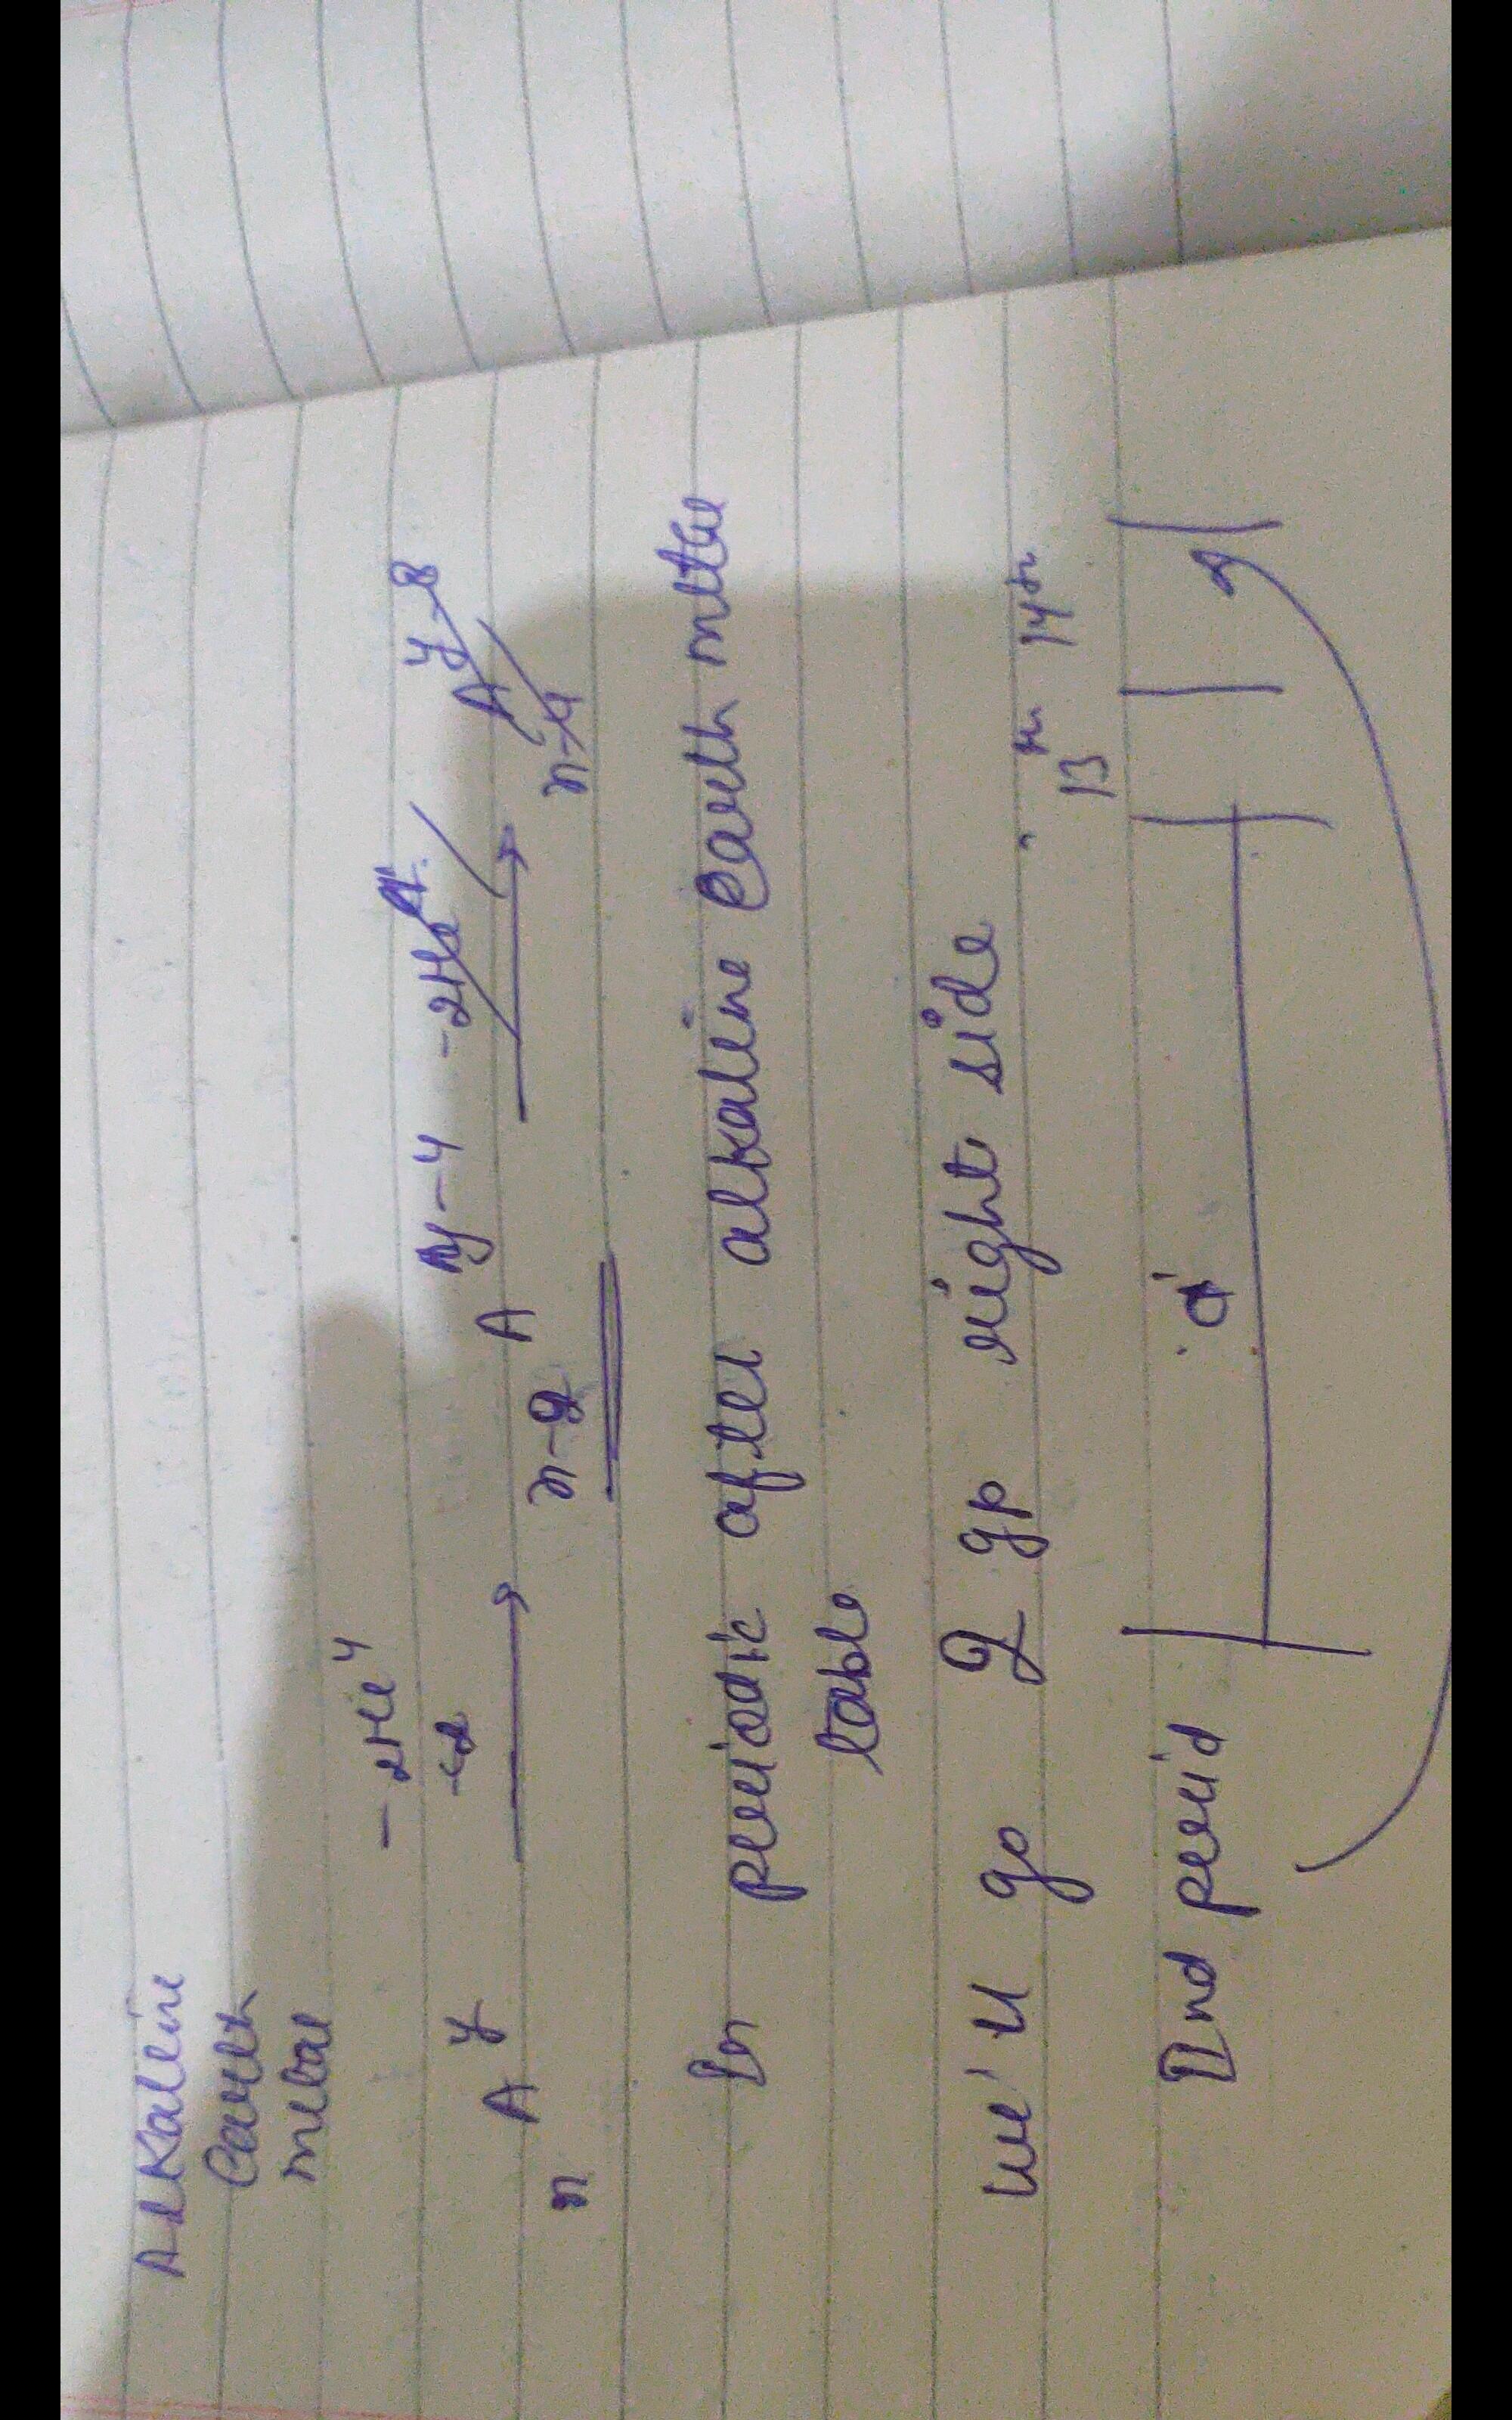 Alkaline
Earth
metal
- 2He 4
A y-4 -2He
n A y → n-2 A → n-4 A y-8
In periodic after alkaline earth metal
table
we'll go 2 gp right side
13 14th
IInd period d